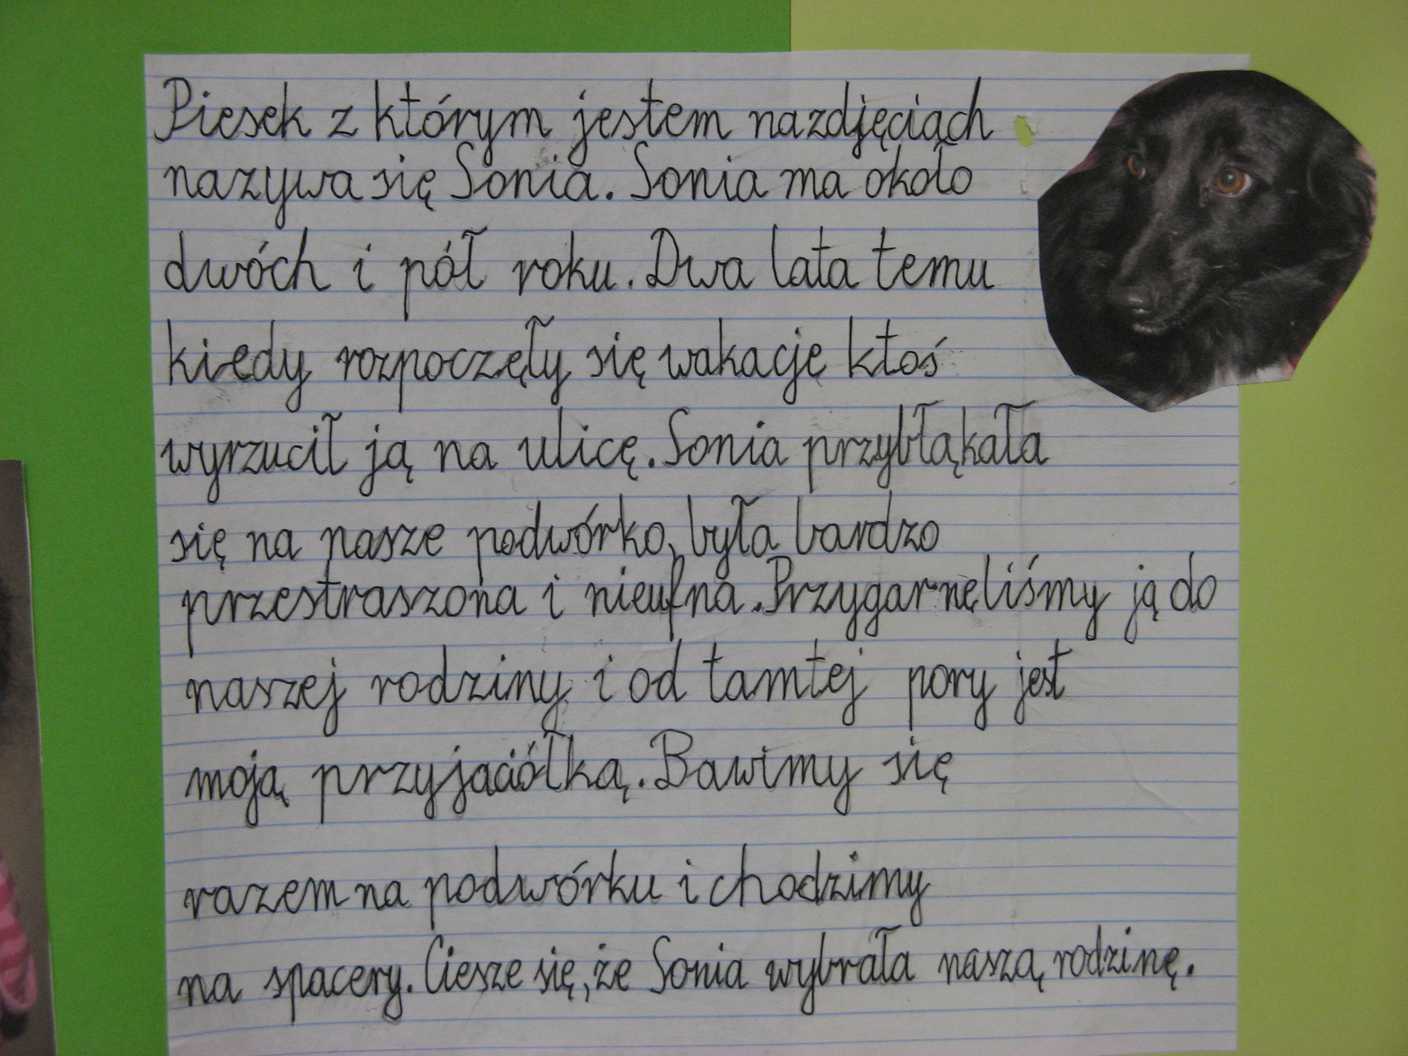 Piesek z którym jestem nazdjęciach
nazywa się Sonia. Sonia ma około
dwóch i pół roku. Dwa lata temu
kiedy rozpoczęły się wakacje ktoś
wyrzucił ją na ulicę. Sonia przybłąkała
się na nasze podwórko, była bardzo
przestraszona i nieufna. Przygarnęliśmy ją do
naszej rodziny i od tamtej pory jest
moją przyjaciółką. Bawimy się
razem na podwórku i chodzimy
na spacery. Ciesze się, że Sonia wybrała naszą rodzinę.